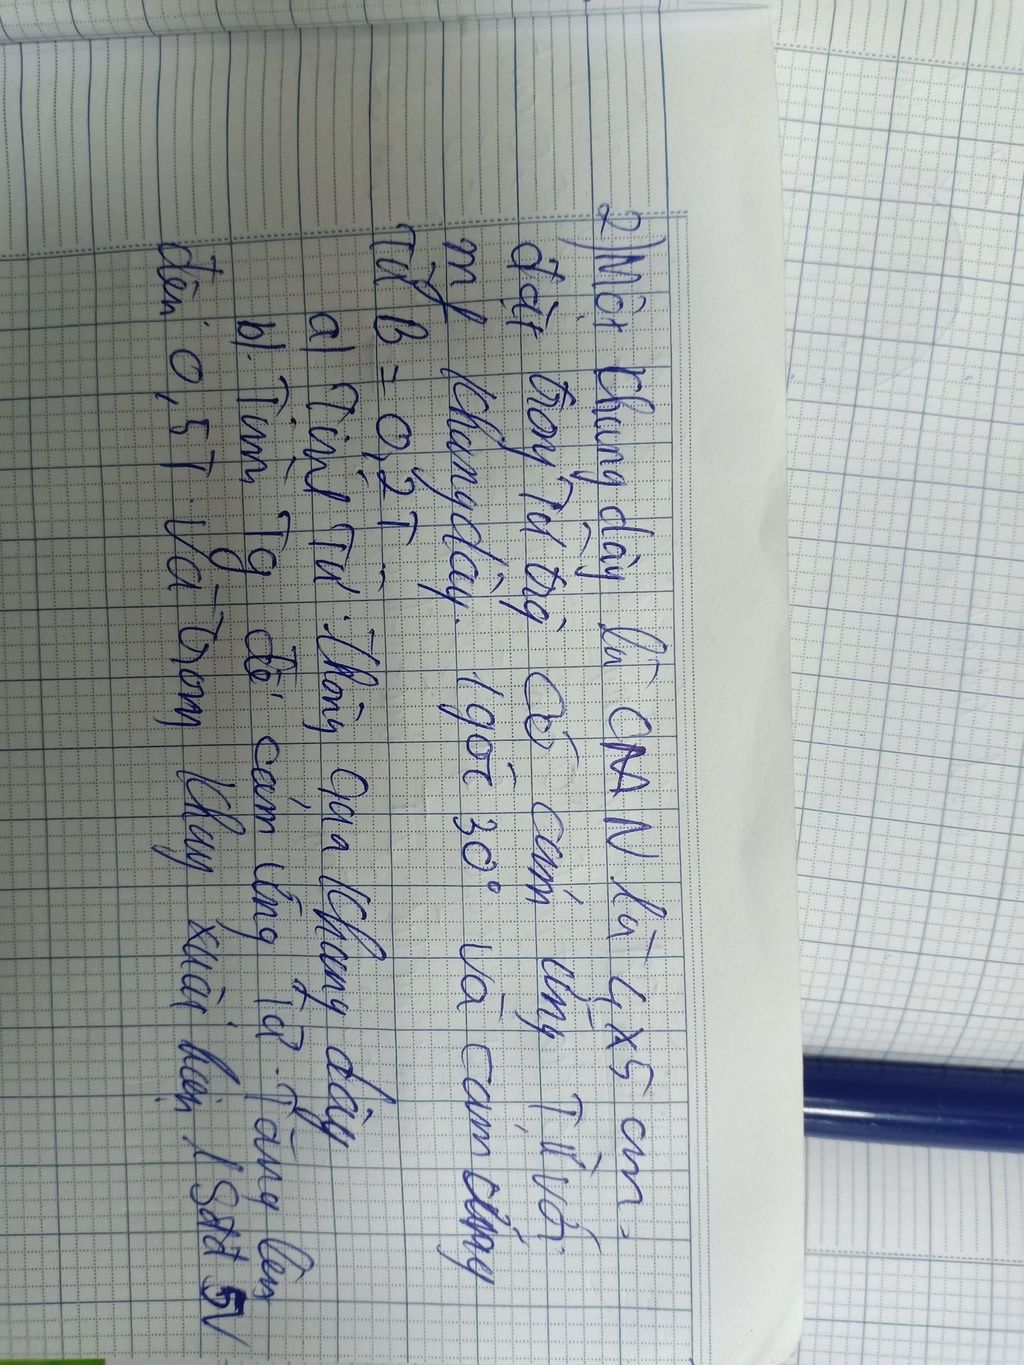 2) Một khung dây là CMN là 4x5 cm.
đặt trong Từ trg có cảm ứng Từ với
mf khung dây. 1 góc 30° và cảm ứng
Từ B = 0,2T
a) Tính Từ thông qua khung dây
b). Tính Tg để cảm ứng Từ Tăng lên
đến 0,5T. Và trong khung xuất hiện 1 Sđđ 5V